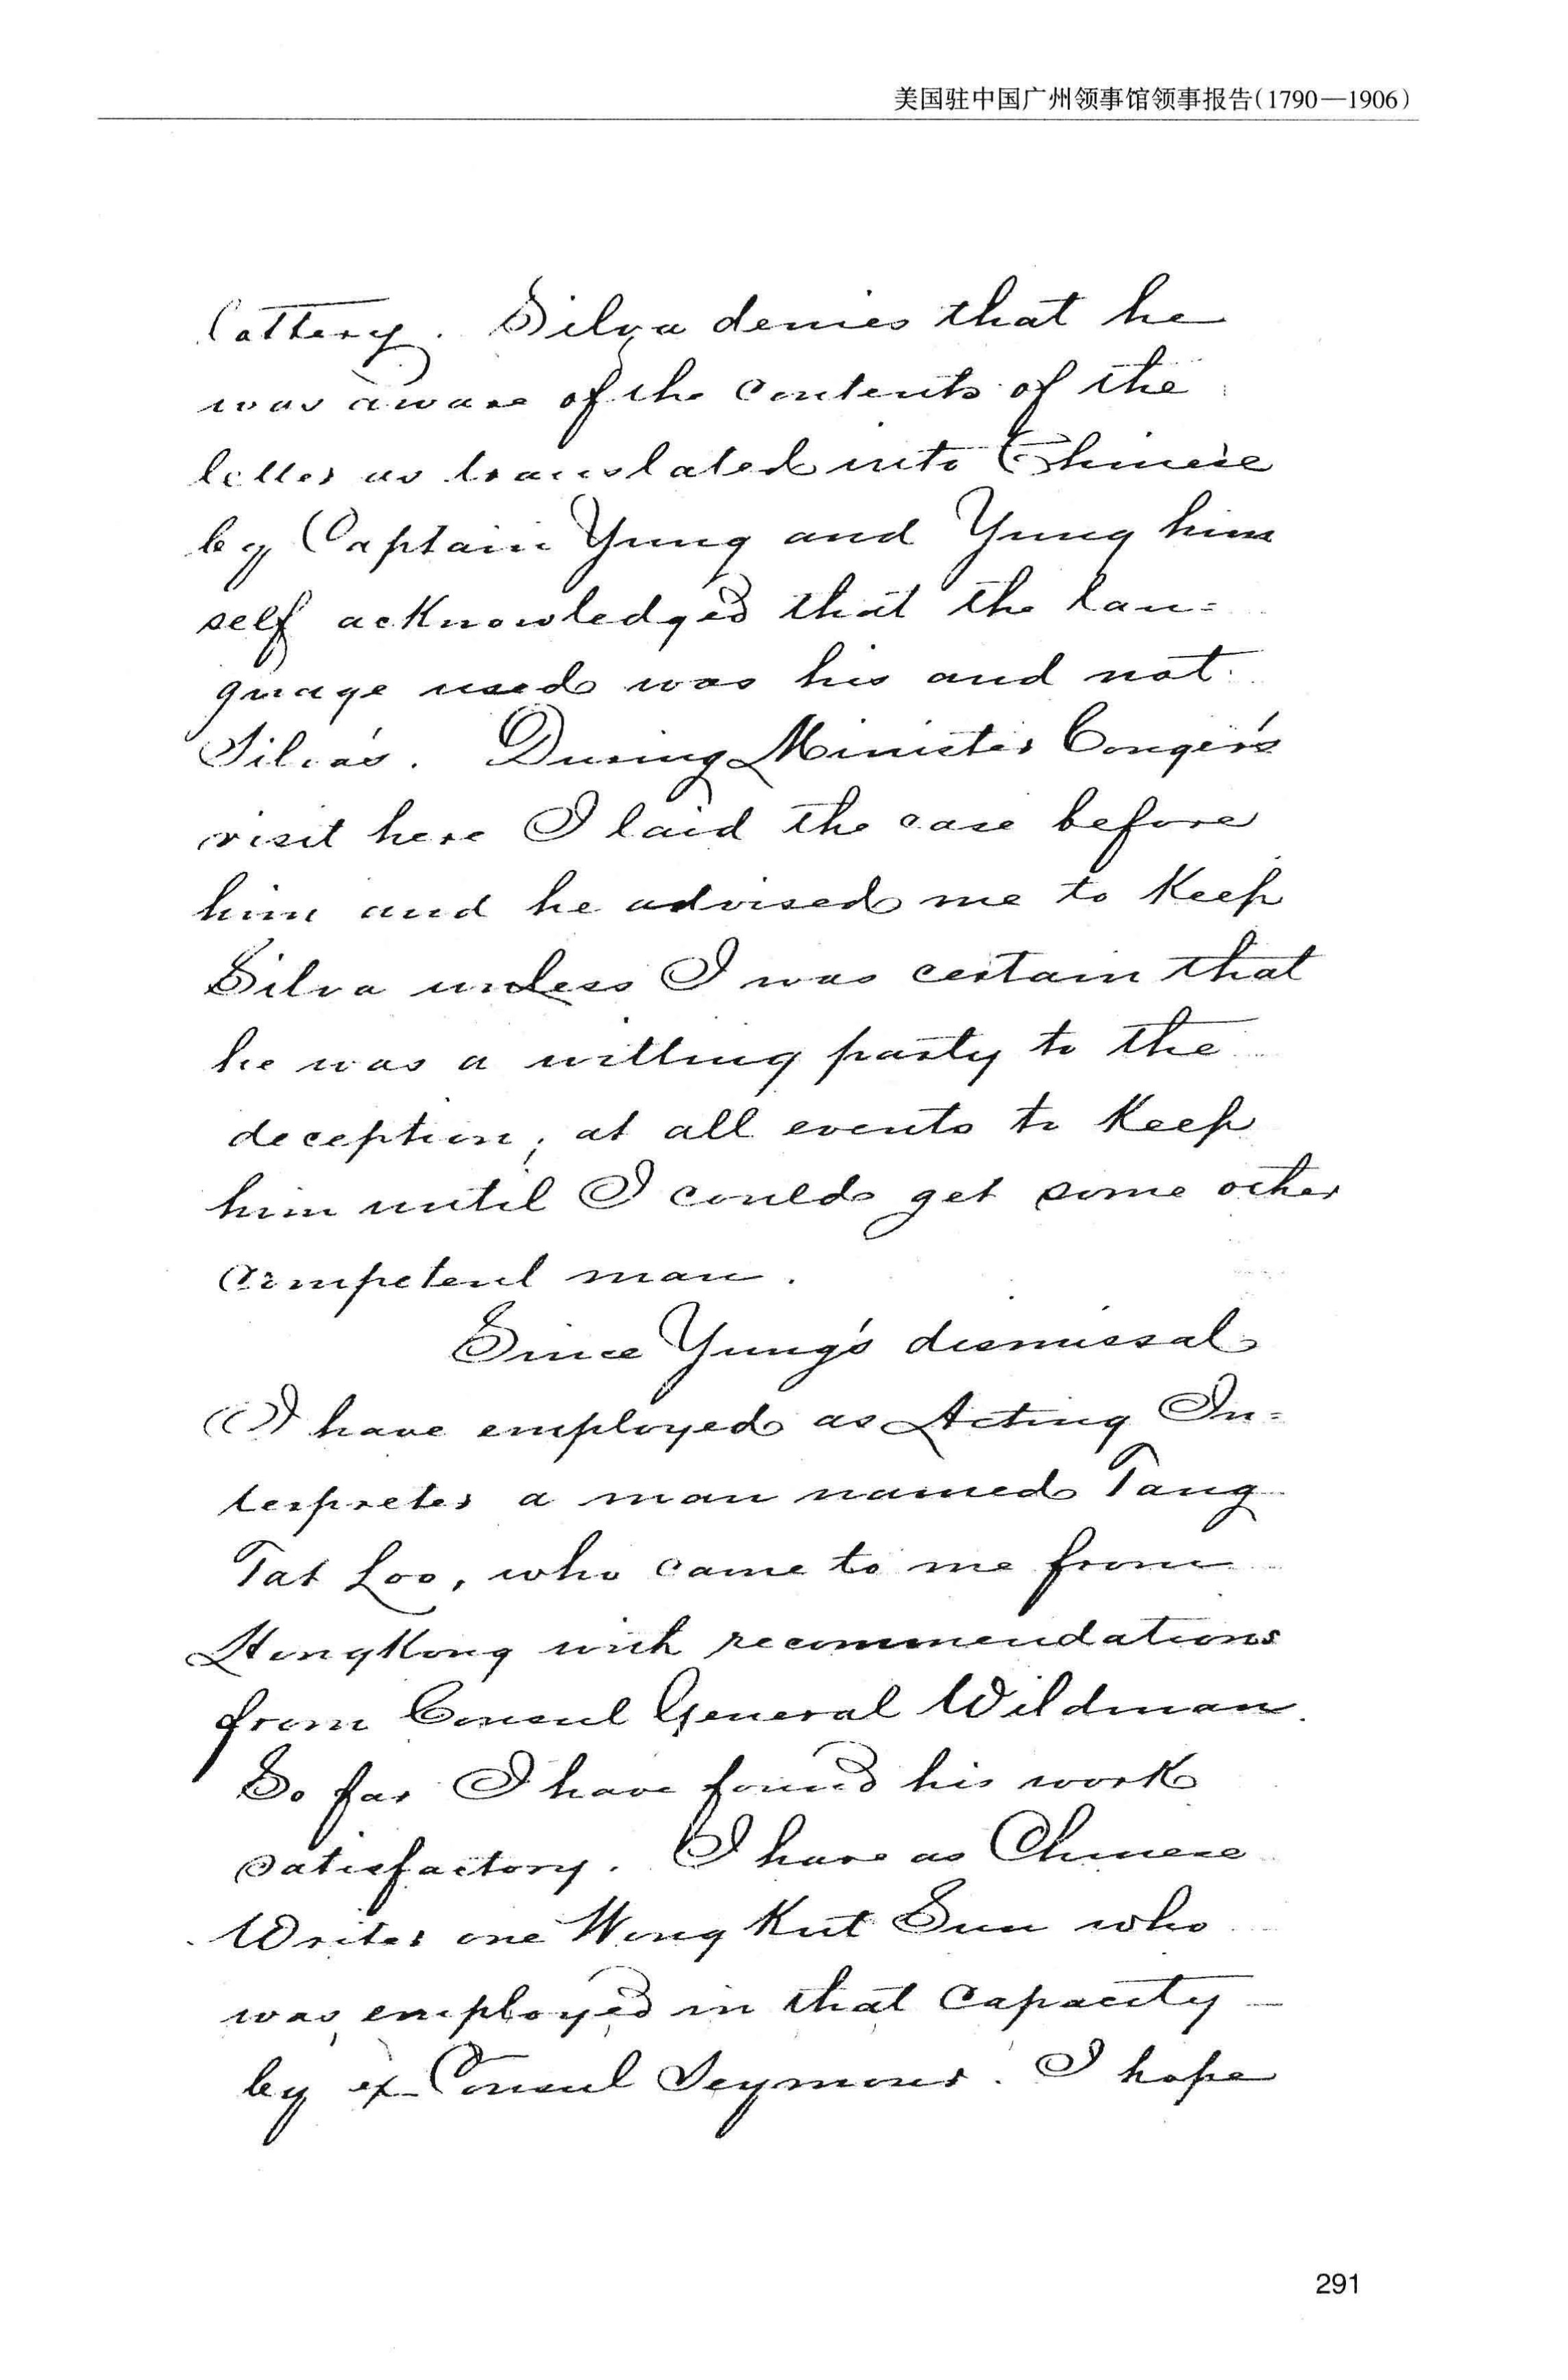 美国驻中国广州领事馆领事报告(1790—1906)
Lottery. Silva denies that he
was aware of the contents of the
letter as translated into Chinese
by Captain Yung and Yung him
self acknowledged that the lan=
guage used was his and not
Silva's. During Minister Conger's
visit here I laid the case before
him and he advised me to keep
Silva unless I was certain that
he was a willing party to the
deception; at all events to keep
him until I could get some other
competent man.
Since Yung's dismissal
I have employed as Acting In=
terpreter a man named Tang
Tat Loo, who came to me from
HongKong with recommendations
from Consul General Wildman.
So far I have found his work
satisfactory. I have as Chinese
Writer one Wong Kut Sun who
was employed in that capacity
by ex-Consul Seymour. I hope
291